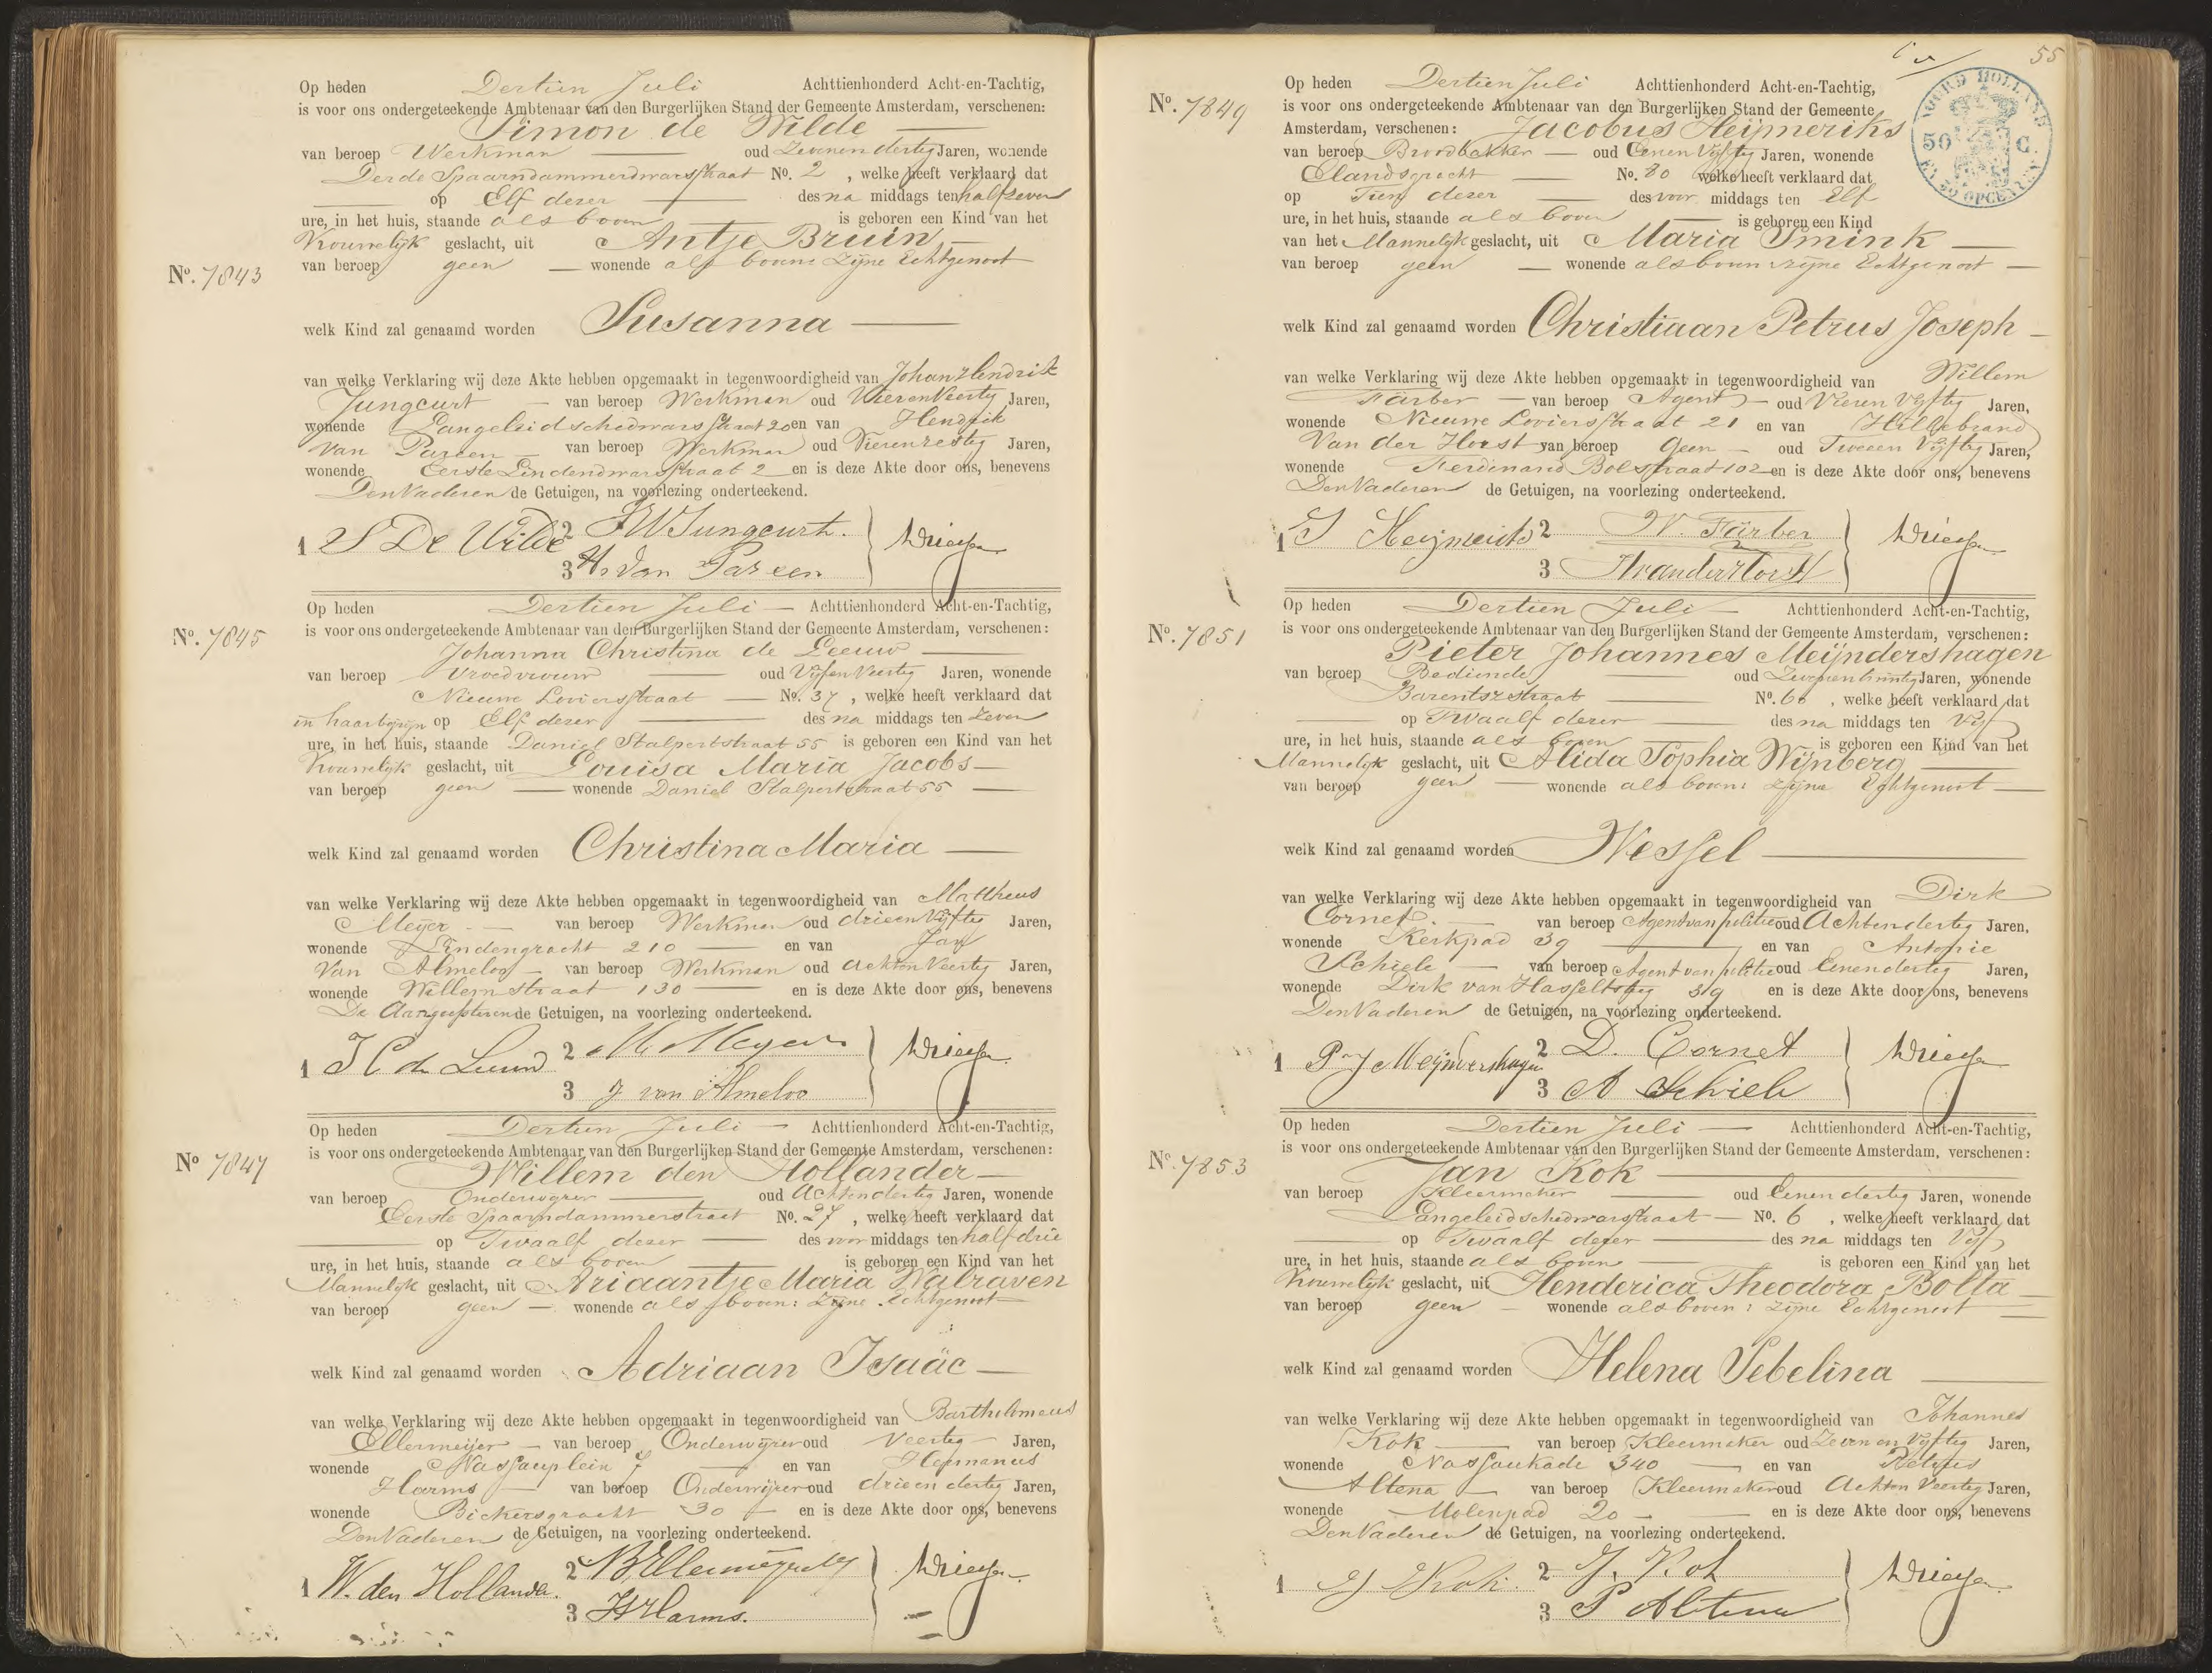 Op heden Dertien Juli Achttienhonderd Acht-en-Tachtig,
is voor ons ondergeteekende Ambtenaar van den Burgerlijken Stand der Gemeente Amsterdam, verschenen:
Simon de Wilde
van beroep Werkman oud Zevenendertig Jaren, wonende
Derde Spaarndammerdwarsstraat No. 2, welke heeft verklaard dat
op Elf dezer des na middags ten half zeven
ure, in het huis, staande als boven is geboren een Kind van het
Vrouwelijk geslacht, uit Antje Bruin
No. 7843
van beroep geen wonende als boven: zijne Echtgenoot
welk Kind zal genaamd worden Susanna
van welke Verklaring wij deze Akte hebben opgemaakt in tegenwoordigheid van Johan Hendrik
Jungcurt van beroep Werkman oud Vierenveertig Jaren,
wonende Langeleidschedwarsstraat 20 en van Hendrik
Van Pareen van beroep Werkman oud Vierenzestig Jaren,
wonende Eerste Lindendwarsstraat 2 en is deze Akte door ons, benevens
Den Vader en de Getuigen, na voorlezing onderteekend.
1 S De Wilde 2 JHJungcurt.
3 H. van Pareen
Op heden Dertien Juli Achttienhonderd Acht-en-Tachtig,
No. 7845
is voor ons ondergeteekende Ambtenaar van den Burgerlijken Stand der Gemeente Amsterdam, verschenen:
Johanna Christina de Leeuw
van beroep Vroedvrouw oud Vijfenveertig Jaren, wonende
Nieuwe Looiersstraat No. 37, welke heeft verklaard dat
in haar bijzijn op Elf dezer des na middags ten zeven
ure, in het huis, staande Daniel Stalpertstraat 55 is geboren een Kind van het
Vrouwelijk geslacht, uit Louisa Maria Jacobs
van beroep geen wonende Daniel Stalpertstraat 55
welk Kind zal genaamd worden Christina Maria
van welke Verklaring wij deze Akte hebben opgemaakt in tegenwoordigheid van Mattheus
Meijer van beroep Werkman oud drieenvijftig Jaren,
wonende Lindengracht 210 en van Jan
Van Almeloo van beroep Werkman oud achtenveertig Jaren,
wonende Willemstraat 130 en is deze Akte door ons, benevens
De Aangeefster en de Getuigen, na voorlezing onderteekend.
1 J C de Leeuw 2 M. Meyer
3 J van Almeloo
Op heden Dertien Juli Achttienhonderd Acht-en-Tachtig,
No 7847
is voor ons ondergeteekende Ambtenaar van den Burgerlijken Stand der Gemeente Amsterdam, verschenen:
Willem den Hollander
van beroep Onderwijzer oud Achtendertig Jaren, wonende
Eerste Spaarndammerstraat No. 27, welke heeft verklaard dat
op Twaalf dezer des voor middags ten half drie
ure, in het huis, staande als boven is geboren een Kind van het
Mannelijk geslacht, uit Ariaantje Maria Walraven
van beroep geen wonende als boven: zijne Echtgenoot
welk Kind zal genaamd worden Adriaan Isaäc
van welke Verklaring wij deze Akte hebben opgemaakt in tegenwoordigheid van Bartholomeus
Ellermeijer van beroep Onderwijzer oud Veertig Jaren,
wonende Nassauplein 7 en van Hermanus
Harms van beroep Onderwijzer oud drieendertig Jaren,
wonende Bickersgracht 30 en is deze Akte door ons, benevens
Den Vader en de Getuigen, na voorlezing onderteekend.
1 W. den Hollander. 2 B Ellermeijer
3 H Harms.
55
NOORD HOLLAND
50 C.
Op heden Dertien Juli Achttienhonderd Acht-en-Tachtig,
No. 7849
is voor ons ondergeteekende Ambtenaar van den Burgerlijken Stand der Gemeente
Amsterdam, verschenen: Jacobus Heijmeriks
van beroep Broodbakker oud Eenenvijftig Jaren, wonende
Elandsgracht No. 80 welke heeft verklaard dat
op Tien dezer des voor middags ten Elf
ure, in het huis, staande als boven is geboren een Kind
van het Mannelijk geslacht, uit Maria Smink
van beroep geen wonende als boven: zijne Echtgenoot
welk Kind zal genaamd worden Christiaan Petrus Joseph
van welke Verklaring wij deze Akte hebben opgemaakt in tegenwoordigheid van Willem
Färber van beroep Agent oud Vierenvijftig Jaren,
wonende Nieuwe Looiersstraat 21 en van Hillebrand
Van der Horst van beroep Geen oud Tweeenvijftig Jaren,
wonende Ferdinand Bolstraat 102 en is deze Akte door ons, benevens
Den Vader en de Getuigen, na voorlezing onderteekend.
1 J Heijmeriks 2 W. Färber
3 H vander Horst
Op heden Dertien Juli Achttienhonderd Acht-en-Tachtig,
No. 7851
is voor ons ondergeteekende Ambtenaar van den Burgerlijken Stand der Gemeente Amsterdam, verschenen:
Pieter Johannes Meijndershagen
van beroep Bediende oud Zevenentwintig Jaren, wonende
Barentszstraat No. 66, welke heeft verklaard dat
op Twaalf dezer des na middags ten Vijf
ure, in het huis, staande als boven is geboren een Kind van het
Mannelijk geslacht, uit Alida Sophia Wijnberg
van beroep geen wonende als boven: zijne Echtgenoot
welk Kind zal genaamd worden Wessel
van welke Verklaring wij deze Akte hebben opgemaakt in tegenwoordigheid van Dirk
Cornet van beroep Agent van politie oud Achtendertig Jaren,
wonende Kerkpad 39 en van Antonie
Schiele van beroep Agent van politie oud Eenendertig Jaren,
wonende Dirk van Hasseltsteeg 39 en is deze Akte door ons, benevens
Den Vader en de Getuigen, na voorlezing onderteekend.
1 P J Meijndershagen 2 D. Cornet
3 A Schiele
Op heden Dertien Juli Achttienhonderd Acht-en-Tachtig,
No. 7853
is voor ons ondergeteekende Ambtenaar van den Burgerlijken Stand der Gemeente Amsterdam, verschenen:
Jan Kok
van beroep Kleermaker oud Eenendertig Jaren, wonende
Langeleidschedwarsstraat No. 6, welke heeft verklaard dat
op Twaalf dezer des na middags ten Vijf
ure, in het huis, staande als boven is geboren een Kind van het
Vrouwelijk geslacht, uit Henderica Theodora Bolta
van beroep geen wonende als boven: zijne Echtgenoot
welk Kind zal genaamd worden Helena Sebelina
van welke Verklaring wij deze Akte hebben opgemaakt in tegenwoordigheid van Johannes
Kok van beroep Kleermaker oud Zevenenvijftig Jaren,
wonende Nassaukade 340 en van
Altena van beroep Kleermaker oud Achtenveertig Jaren,
wonende Molenpad 20 en is deze Akte door ons, benevens
Den Vader en de Getuigen, na voorlezing onderteekend.
1 J Kok. 2 J. Kok
3 P Altena